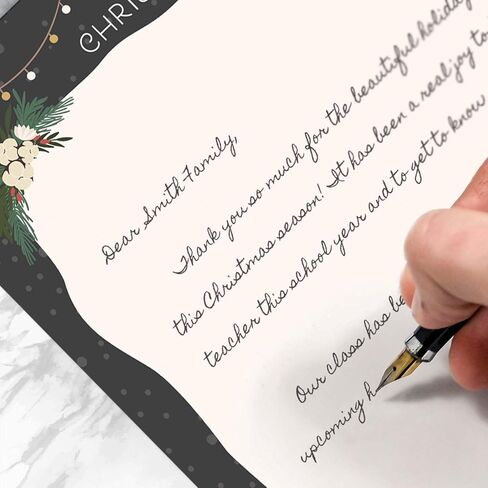 CHRIS
Dear Smith Family,
Thank you so much for the beautiful holiday
this Christmas season! It has been a real joy to
teacher this school year and to get to know
Our class has be
upcoming h